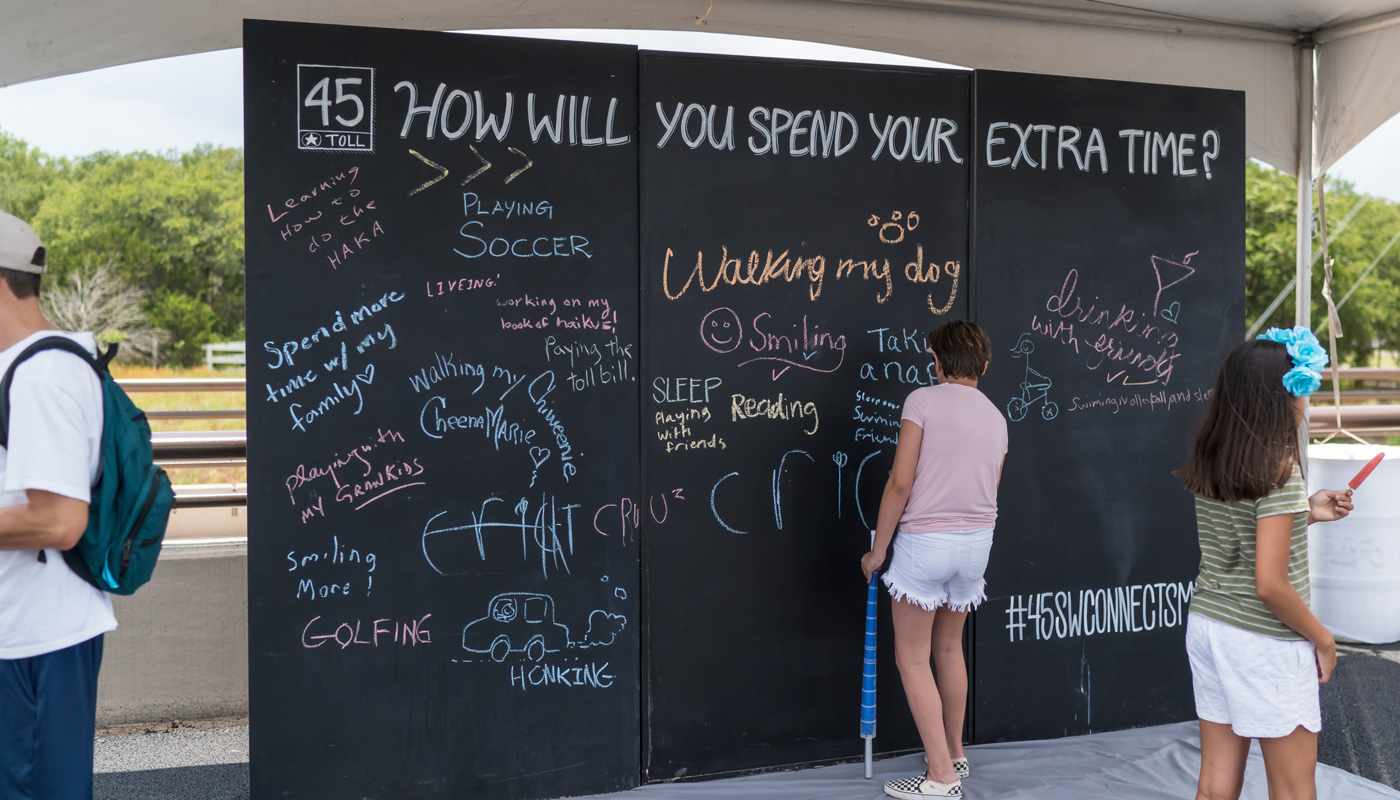 45
TOLL
HOW WILL YOU SPEND YOUR EXTRA TIME?
Learning
How to
do the
HAKA
PLAYING
SOCCER
LIVEING!
working on my
book of haikus!
Paying the
toll bill.
Spend more
time w/ my
family
Walking my
CheenaMarie
Chiweenie
playing with
MY GRANKIDS
smiling
More!
GOLFING
HONKING
Walking my dog
Smiling
SLEEP
Playing
with
friends
Reading
Taki
a nap
Sleep over
Swimmin
Friend
drinking
with friends
Swiming, Volleyball, and slee
#45SWCONNECTSM